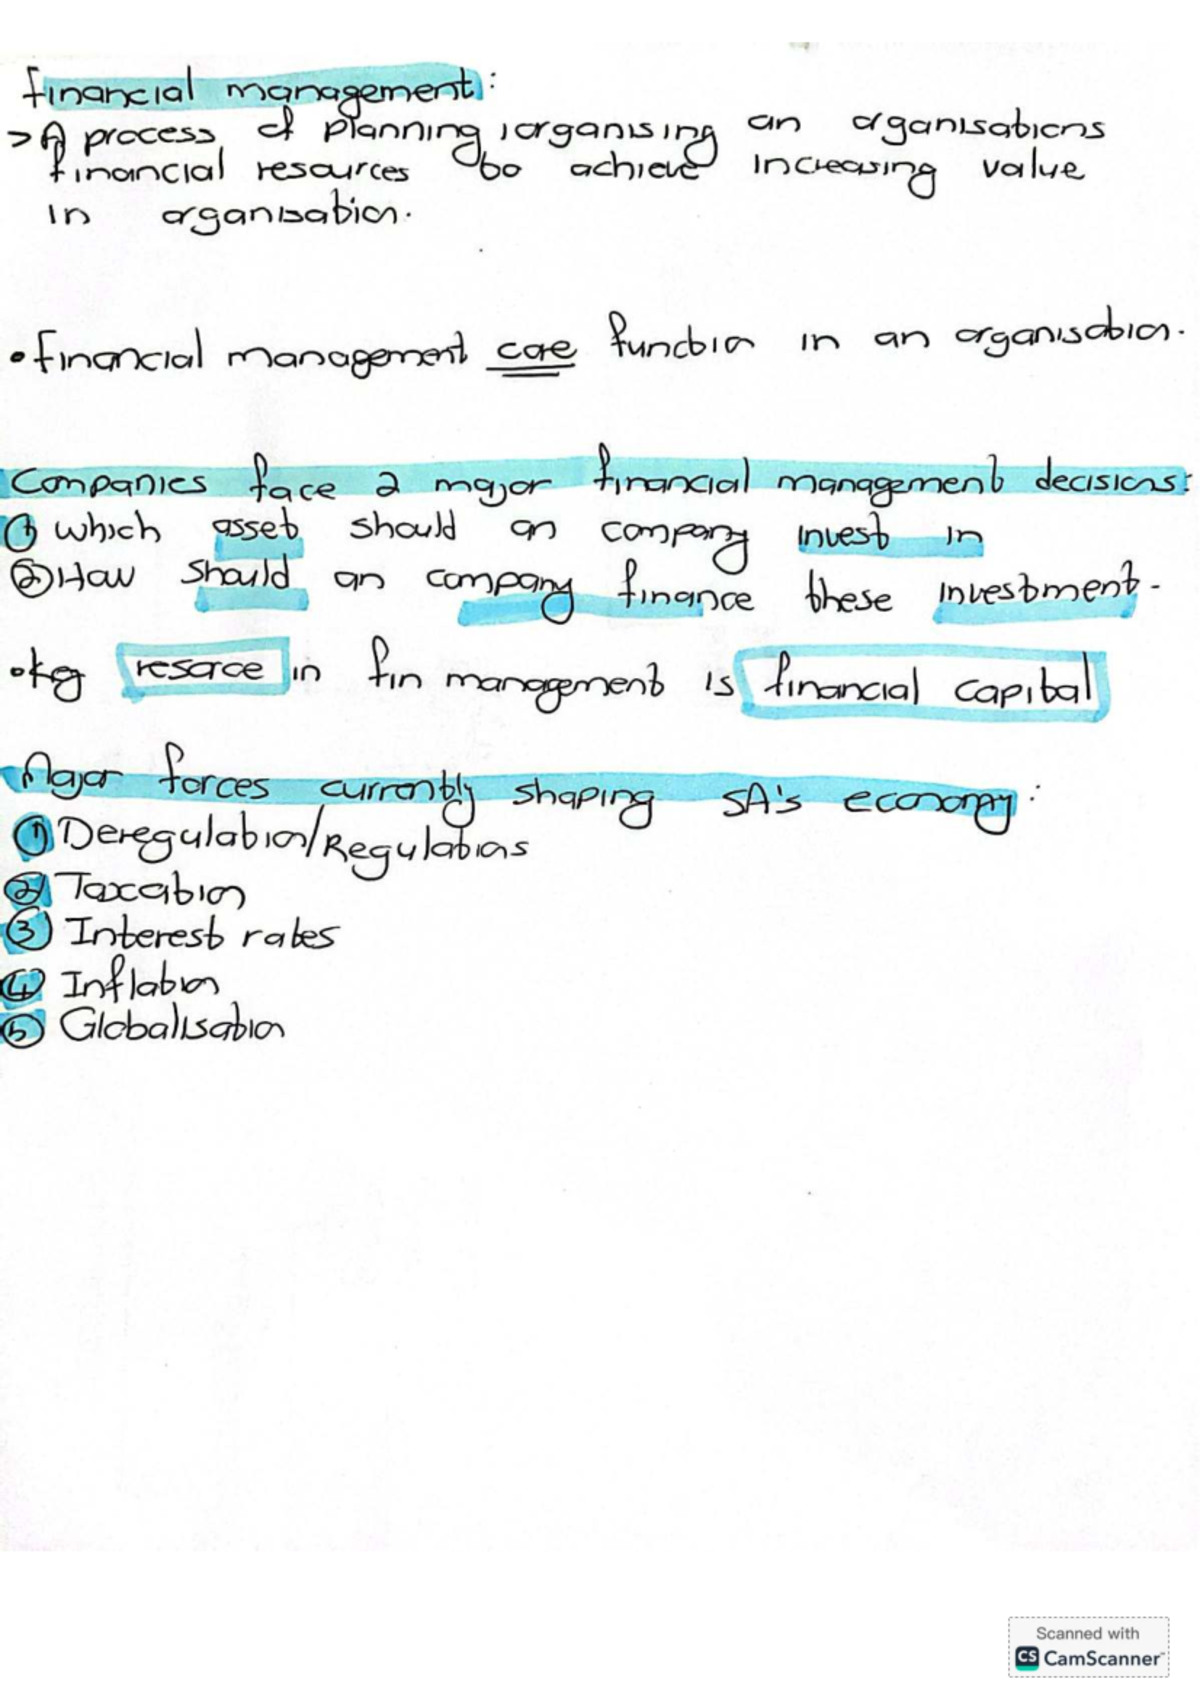 Financial management:
> A process of planning, organising an organisations
financial resources to achieve increasing value
in organisation.
• Financial management core function in an organisation.
Companies face 2 major financial management decisions:
① which asset should an company invest in
② How should an company finance these investment.
• key resorce in fin management is financial capital
Major forces currently shaping SA's economy:
① Deregulation/Regulations
② Taxation
③ Interest rates
④ Inflation
⑤ Globalisation
Scanned with
CS CamScanner